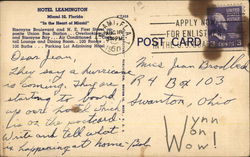 HOTEL LEAMINGTON
Miami 32, Florida
In the Heart of Miami
Biscayne Boulevard and N. E. First Street
MIAMI, FLA.
APPLY NOW
FOR ENLIST
POST CARD
Dear Jean,
They say a hurricane
is coming. They are
starting to board
up our hotel, shown
on the postcard.
Write and tell what
is happening at home. Bob
Miss Jean Brodbeck
R 4 Box 103
Swanton, Ohio
Wynn
Won
Now!